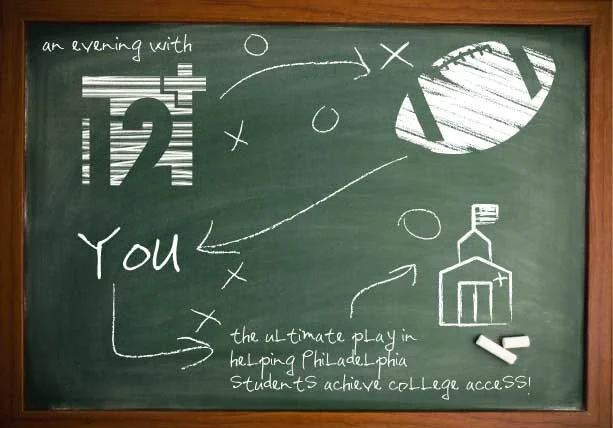 an evening with
12+
You
the ultimate play in
helping Philadelphia
Students achieve college access!